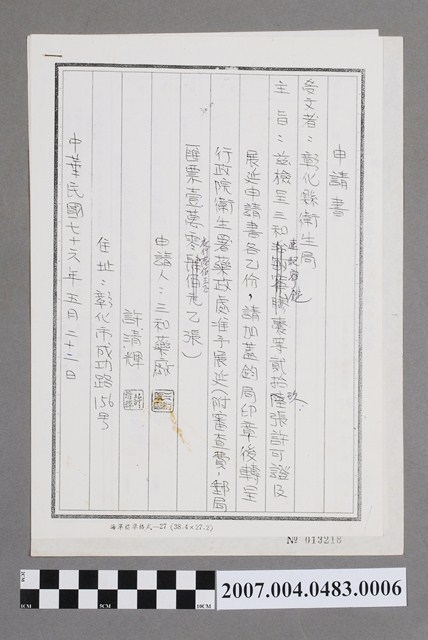 申請書
受文者：彰化縣衛生局
主旨：茲檢呈三和膠囊等貳拾玖張許可證及
展延申請書各乙份，請加蓋鈞局印章後轉呈
行政院衛生署藥政處准予展延（附審查費，郵局
匯票壹萬零佰元乙張）
申請人：三和藥廠
許清輝
住址：彰化市成功路156号
中華民國七十六年五月二十二日
(38.4×27.2)
№ 013218
1CM
5CM
10CM
2007.004.0483.0006